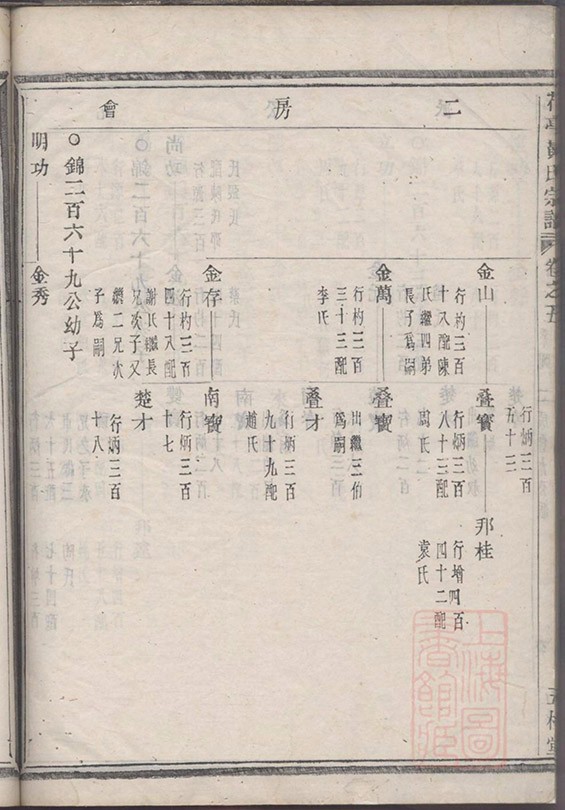 氏宗譜
卷之五
二房會
行炳三百
五十三
金山
疊寶
邦桂
行杓三百
十八配陳
氏繼四弟
長子爲嗣
行炳三百
八十三配
周氏
行增四百
四十二配
袁氏
金萬
疊寶
行杓三百
三十三配
李氏
出繼三伯
爲嗣
疊才
行炳三百
九十九配
趙氏
金存
南寶
行杓三百
四十八配
謝氏繼長
兄次子又
繼二兄次
子爲嗣
行炳三百
十七
楚才
行炳三百
十八
○錦二百六十九公幼子
明功
金秀
上海圖
書館藏